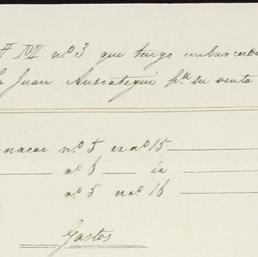 nº 3 que tengo embarcad
Juan Aurcategui pª su venta
nacar nº 5 ex nº 15
nº 6 — id
nº 5 ex nº 16
Gastos